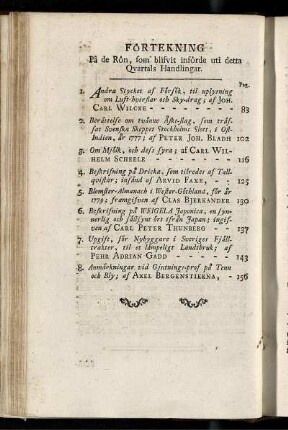 FÖRTEKNING
På de Rön, som blifvit införde uti detta
Qvartals Handlingar.
Pag.
1. Andra Stycket af Försök, til uplysning
om Luft-hvirflar och Sky-drag; af JOH.
CARL WILCKE - - 83
2. Berättelse om tvänne Åske-slag, som träf-
fat Svenska Skeppet Stockholms Slott, i Ost-
Indien, år 1777; af PETER JOH. BLADH 102
3. Om Mjölk, och dess syra; af CARL WIL-
HELM SCHEELE - - 116
4. Beskrifning på Dräcka, som tilredes af Tall-
qvistar; insänd af ARVID FAXE, - 125
5. Blomster-Almanach i Wester-Göthland, för år
1779; framgifven af CLAS BJERKANDER 130
6. Beskrifning på WEIGELA Japonica, en syn-
nerlig och sällsynt ört ifrån Japan; ingif-
ven af CARL PETER THUNBERG - 137
7. Upgift, för Nybyggare i Sveriges Fjäll-
trakter, til et lämpeligt Landtbruk; af
PEHR ADRIAN GADD - - 143
8. Anmärkningar vid Gjutnings-prof på Tenn
och Bly; af AXEL BERGENSTJERNA, - 156